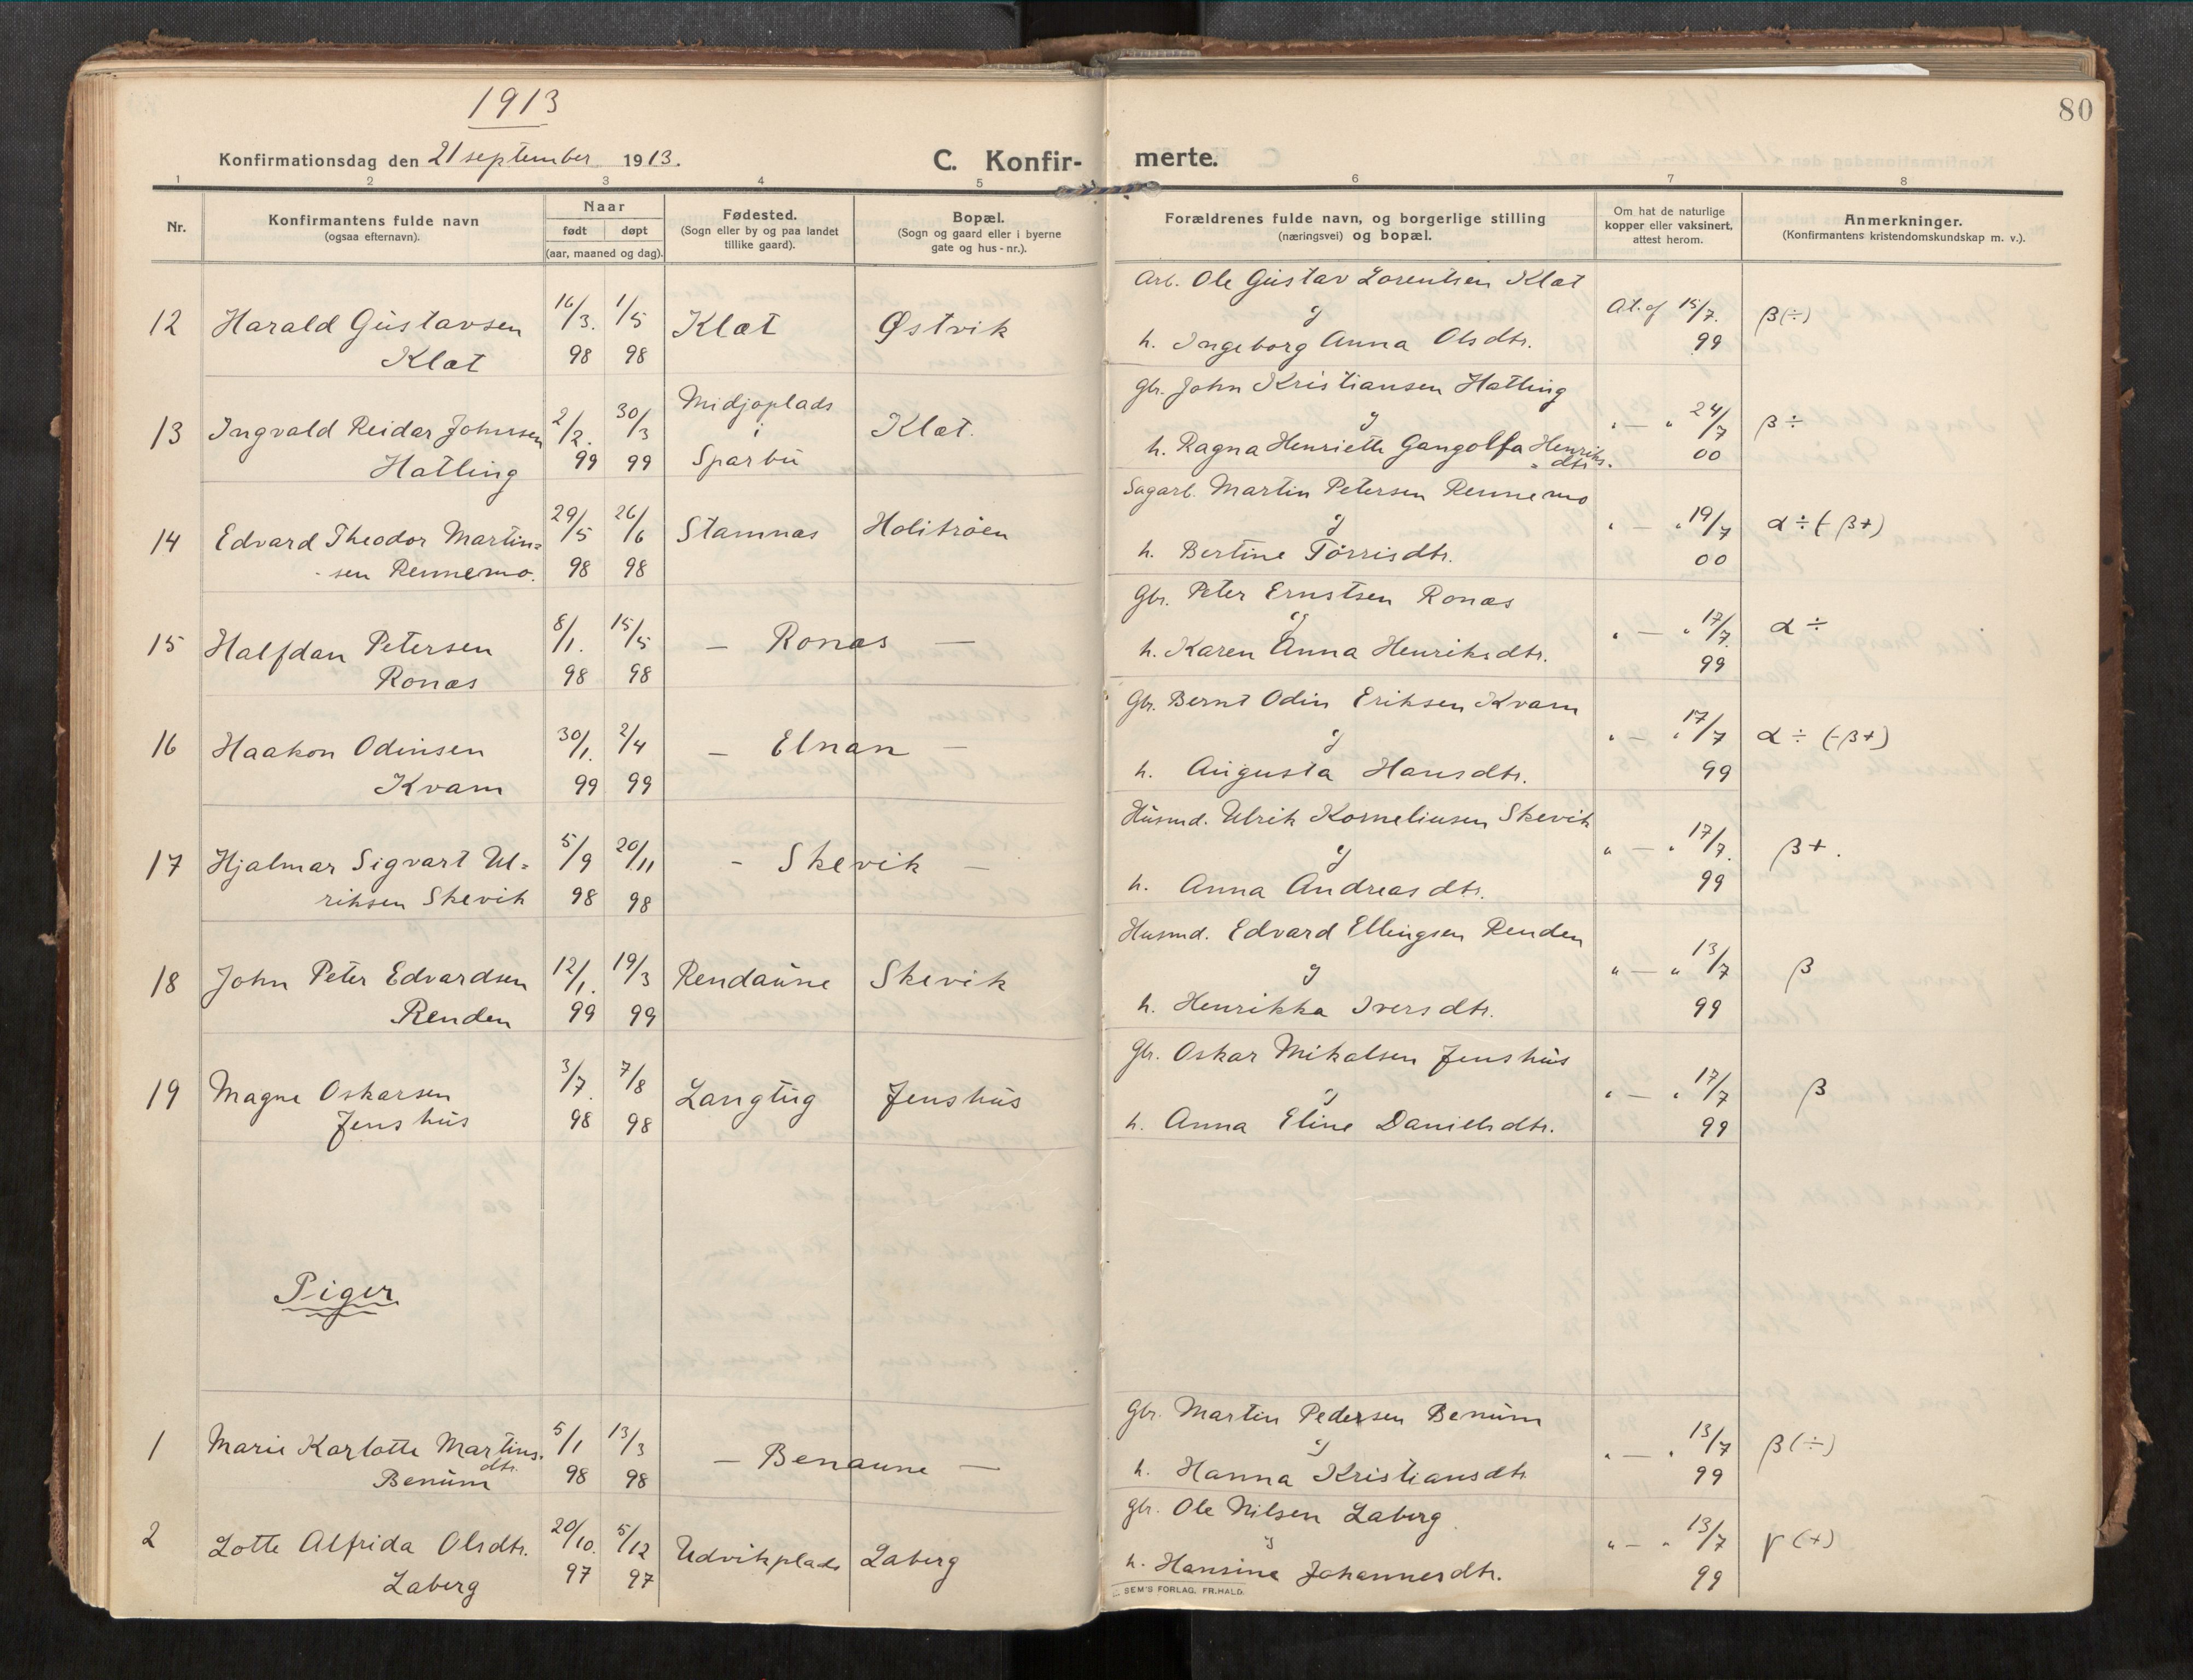 1913
80
Konfirmationsdag den 21 september 1913.
C. Konfir- merte.
1 2 3 4 5 6 7 8
Nr.
Konfirmantens fulde navn
(ogsaa efternavn).
Naar
født døpt
(aar, maaned og dag).
Fødested.
(Sogn eller by og paa landet
tillike gaard).
Bopæl.
(Sogn og gaard eller i byerne
gate og hus-nr.).
Forældrenes fulde navn, og borgerlige stilling
(næringsvei) og bopæl.
Om hat de naturlige
kopper eller vaksinert,
attest herom.
Anmerkninger.
(Konfirmantens kristendomskundskap m. v.).
Arb. Ole Gustav Lorentsen Klæt
12 Harald Gustavsen 16/3. 1/5 Klæt Østvik og At. af 15/7. β(÷)
Klæt 98 98 h. Ingeborg Anna Olsdtr. 99
Gbr. John Kristiansen Hatling
13 Ingvald Reidar Johnsen 2/2. 30/3 Midjoplads i Klæt. og " — " 24/7 β÷
Hatling 99 99 Sparbu h. Ragna Henriette Gangolfa Henriks- 00
dtr.
Sagarb. Martin Petersen Rennemo
14 Edvard Theodor Martin= 29/5 26/6 Stamnæs Holitrøen og " — " 19/7 α÷(-β+)
-sen Rennemo. 98 98 h. Bertine Tørrisdtr. 00
Gbr. Peter Ernstsen Ronæs
15 Halfdan Petersen 8/1. 15/5 — Ronæs — og " — " 17/7. α÷
Ronæs 98 98 h. Karen Anna Henriksdtr. 99
Gbr. Bernt Odin Eriksen Kvam
16 Haakon Odinsen 30/1. 2/4 — Elnan — og " — " 17/7 α÷(-β+)
Kvam 99 99 h. Augusta Hansdtr. 99
Husmd. Ulrik Korneliusen Skevik
17 Hjalmar Sigvart Ul= 5/9 20/11 - Skevik — og " — " 17/7. β+.
riksen Skevik 98 98 h. Anna Andreasdtr. 99
Husmd. Edvard Ellingsen Renden
18 John Peter Edvardsen 12/1. 19/3 Rendaune Skevik og " — " 13/7 β
Renden 99 99 h. Henrikka Iversdtr. 99
Gbr. Oskar Mikalsen Jenshus
19 Magne Oskarsen 3/7. 7/8 Langtug Jenshus og " — " 17/7 β
Jenshus 98 98 h. Anna Eline Danielsdtr. 99
Piger
Gbr. Martin Pedersen Benum
1 Marie Karlotte Martins- 5/1 13/3 — Benaune — og " — " 13/7 β(÷)
dtr.
Benum 98 98 h. Hanna Kristiansdtr. 99
Gbr. Ole Nilsen Laberg
2 Lotte Alfrida Olsdtr. 20/10. 5/12 Udvikplads Laberg og " — " 13/7 γ(+)
Laberg 97 97 h. Hansine Johannesdtr. 99
SEM'S FORLAG. FR.HALD.